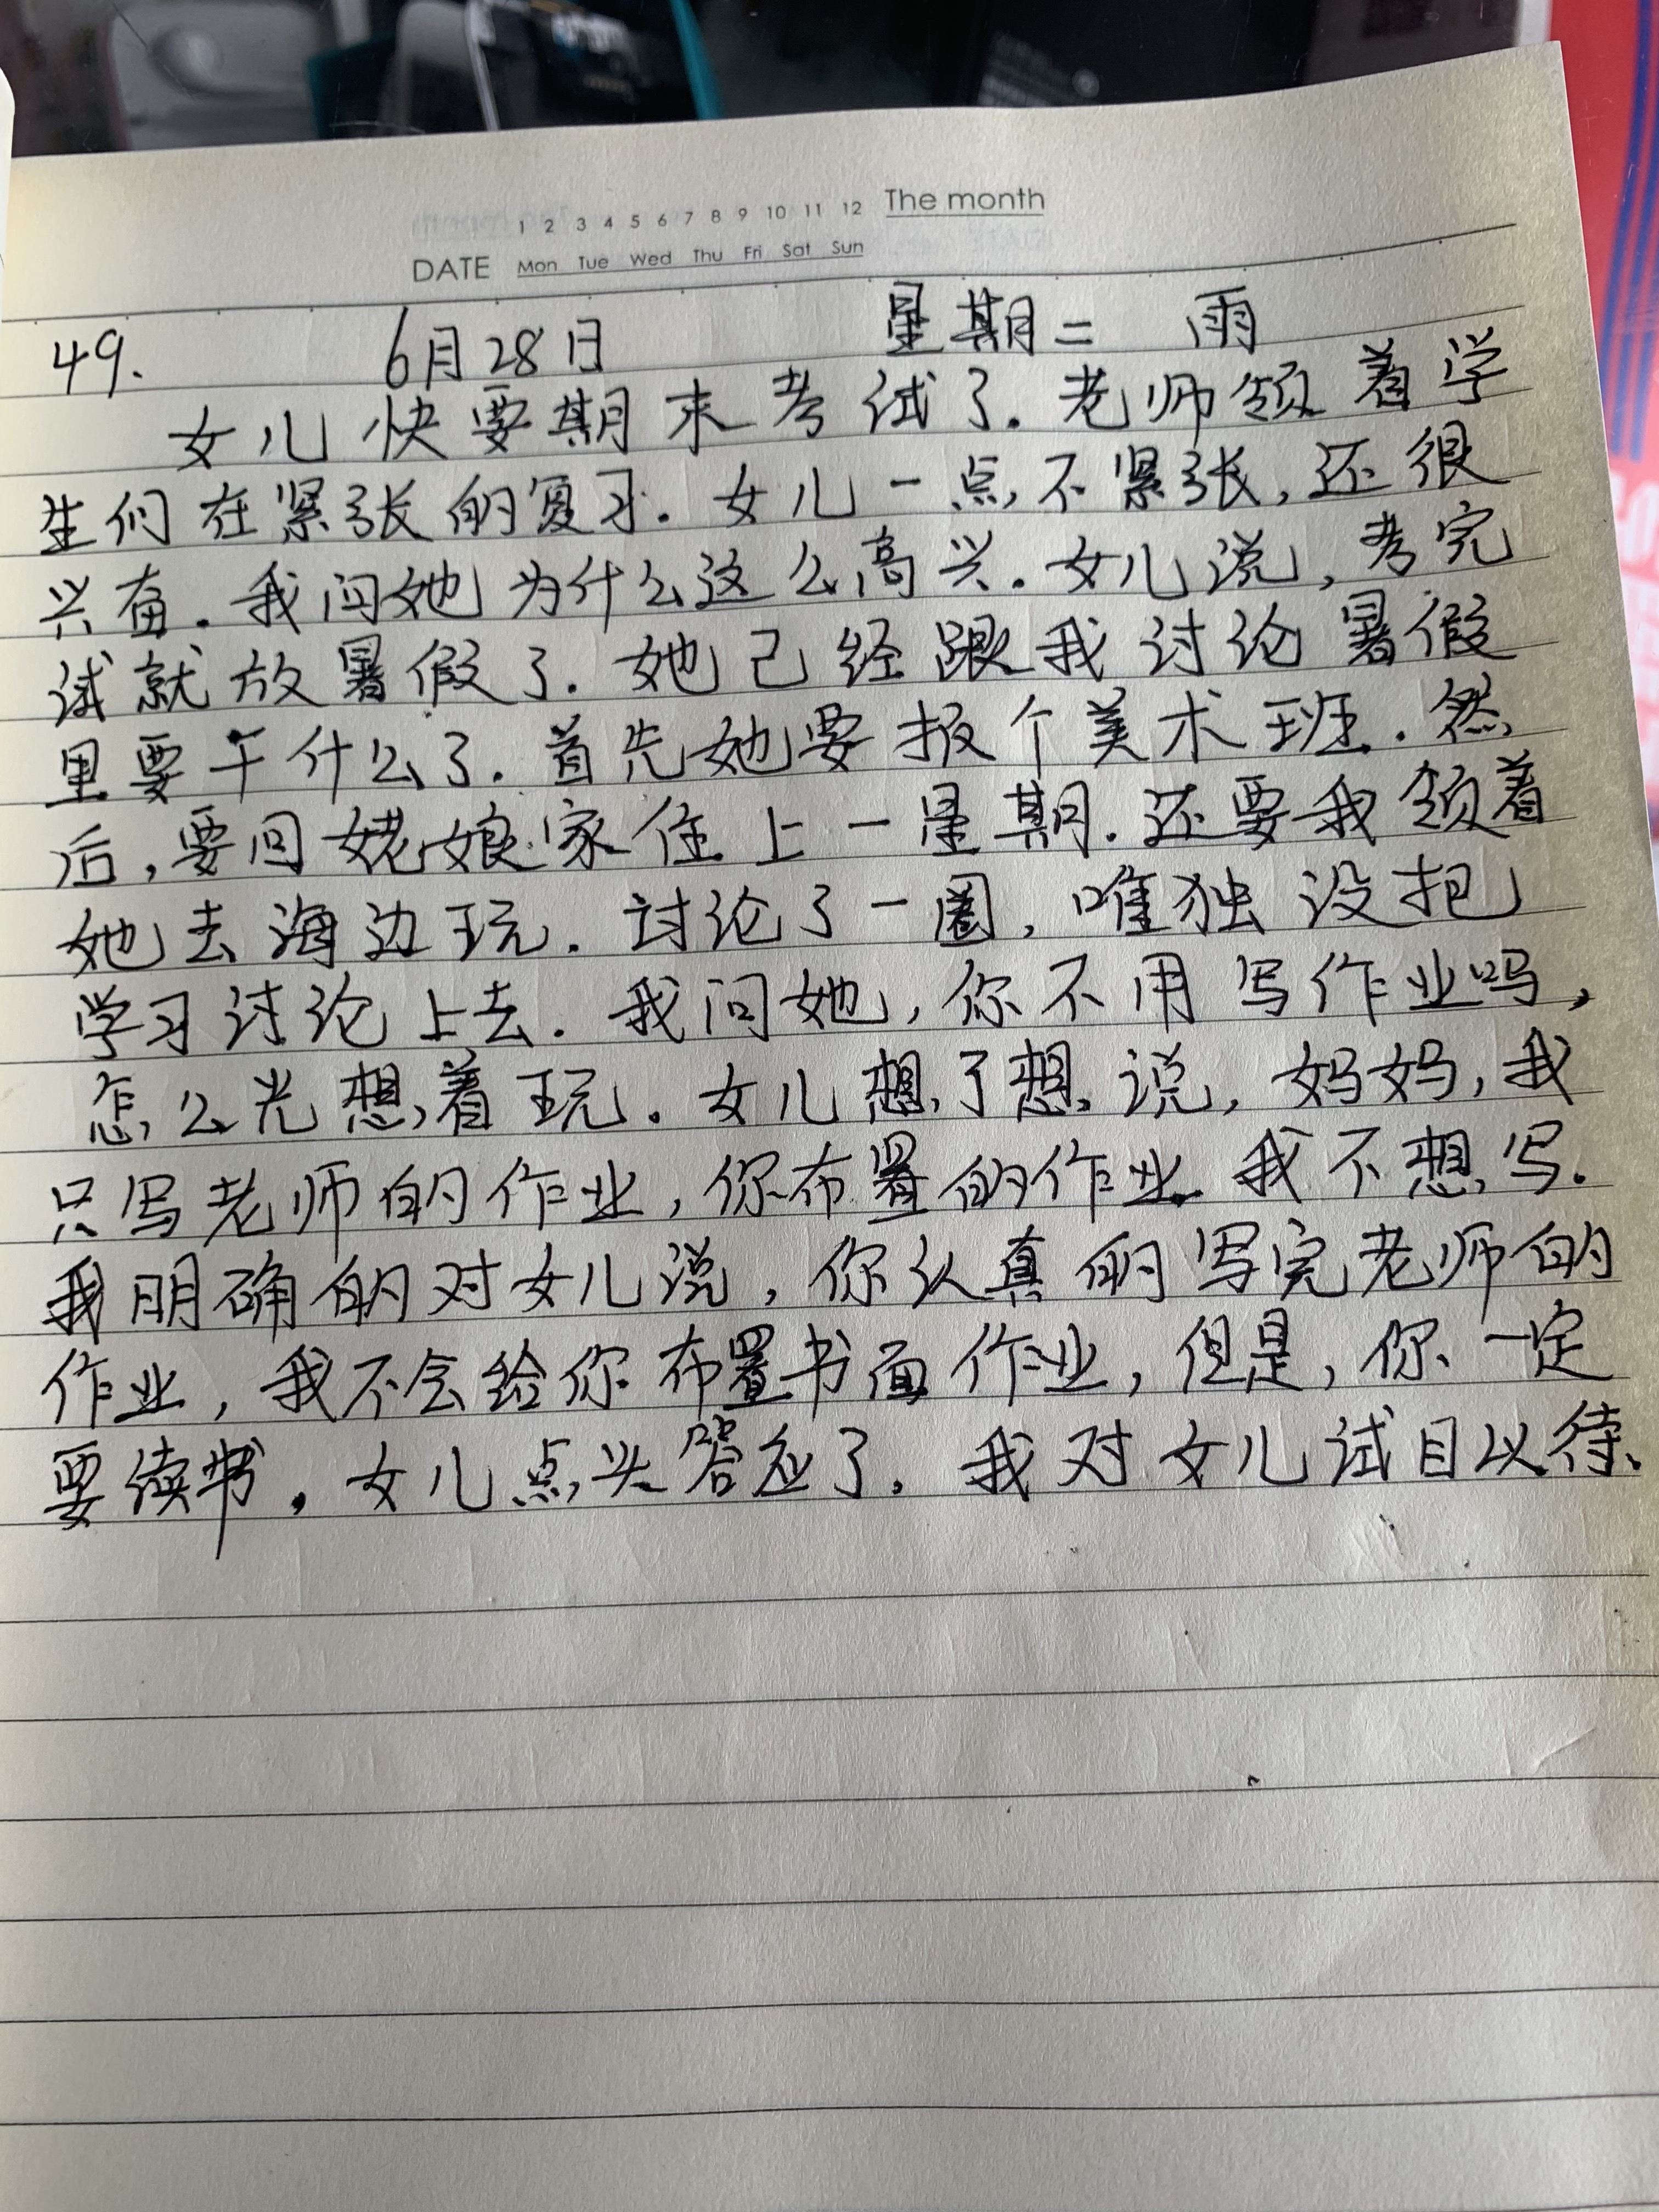 1 2 3 4 5 6 7 8 9 10 11 12 The month
DATE Mon Tue Wed Thu Fri Sat Sun
49. 6月28日 星期二 雨
女儿快要期末考试了.老师领着学
生们在紧张的复习.女儿一点不紧张,还很
兴奋.我问她为什么这么高兴.女儿说,考完
试就放暑假了.她己经跟我讨论暑假
里要干什么了.首先她要报个美术班.然
后,要回姥娘家住上一星期.还要我领着
她去海边玩.讨论了一圈,唯独没把
学习讨论上去.我问她,你不用写作业吗,
怎么光想着玩.女儿想了想说,妈妈,我
只写老师的作业,你布置的作业我不想写.
我明确的对女儿说,你认真的写完老师的
作业,我不会给你布置书面作业,但是,你一定
要读书.女儿点头答应了.我对女儿试目以待.